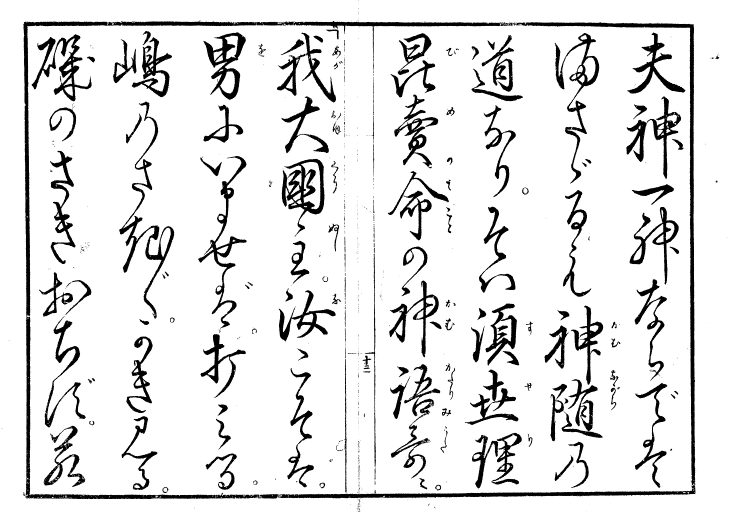 夫神一神ならでは
まさゞるは神随乃
道なり。そハ須世理
毘賣命の神語哥に、
十二
我大國主。汝こそは。
男にいませば。打ミる。
嶋乃さき〴〵。かきみる。
磯のさきおちず。若